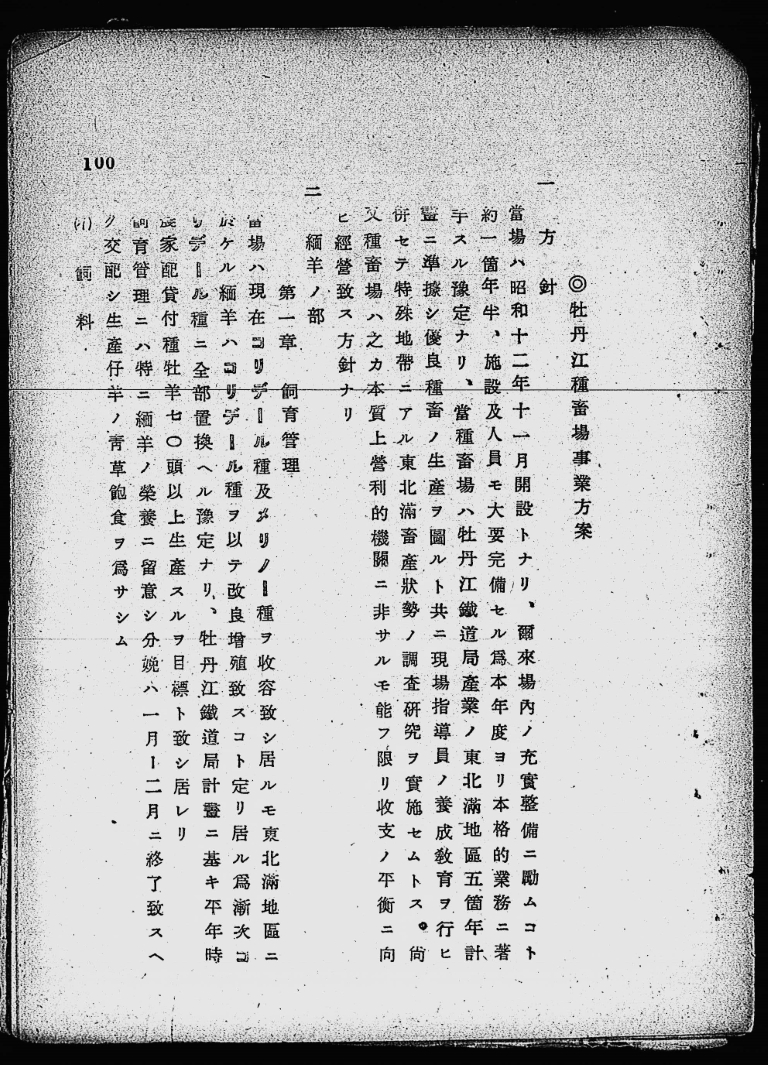 100
◎牡丹江種畜場事業方案
一　方　針
當場ハ昭和十二年十一月開設トナリ、爾來場內ノ充實整備ニ勵ムコト
約一箇年半、施設及人員モ大要完備セル爲本年度ヨリ本格的業務ニ著
手スル豫定ナリ、當種畜場ハ牡丹江鐵道局產業ノ東北滿地區五箇年計
畫ニ準據シ優良種畜ノ生產ヲ圖ルト共ニ現場指導員ノ養成敎育ヲ行ヒ
併セテ特殊地帶ニアル東北滿畜產狀勢ノ調査硏究ヲ實施セムトス。尙
又種畜場ハ之カ本質上營利的機關ニ非サルモ能フ限リ收支ノ平衡ニ向
ヒ經營致ス方針ナリ
二　緬羊ノ部
第一章　飼育管理
當場ハ現在コリデール種及メリノー種ヲ收容致シ居ルモ東北滿地區ニ
於ケル緬羊ハコリデール種ヲ以テ改良增殖致スコト定リ居ル爲漸次コ
リデール種ニ全部置換ヘル豫定ナリ、牡丹江鐵道局計畫ニ基キ平年時
農家配貸付種牡羊七〇頭以上生產スルヲ目標ト致シ居レリ
飼育管理ニハ特ニ緬羊ノ榮養ニ留意シ分娩ハ一月ー二月ニ終了致スヘ
ク交配シ生產仔羊ノ靑草飽食ヲ爲サシム
(イ)　飼　料